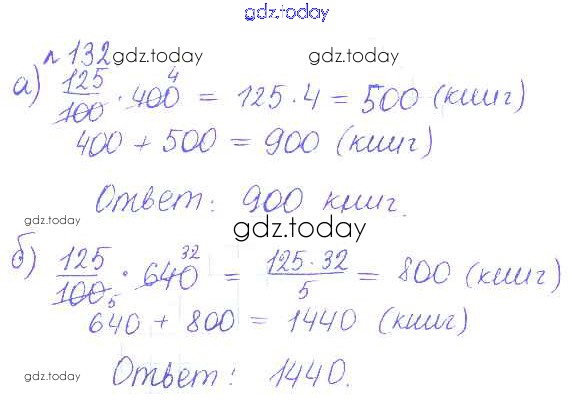 gdz.today
№132 gdz.today gdz.today
а) 125/100 · 400 4 = 125 · 4 = 500 (книг)
400 + 500 = 900 (книг)
Ответ: 900 книг.
gdz.today gdz.today
б) 125/100 5 · 640 32 = 125 · 32/5 = 800 (книг)
640 + 800 = 1440 (книг)
gdz.today Ответ: 1440. gdz.today